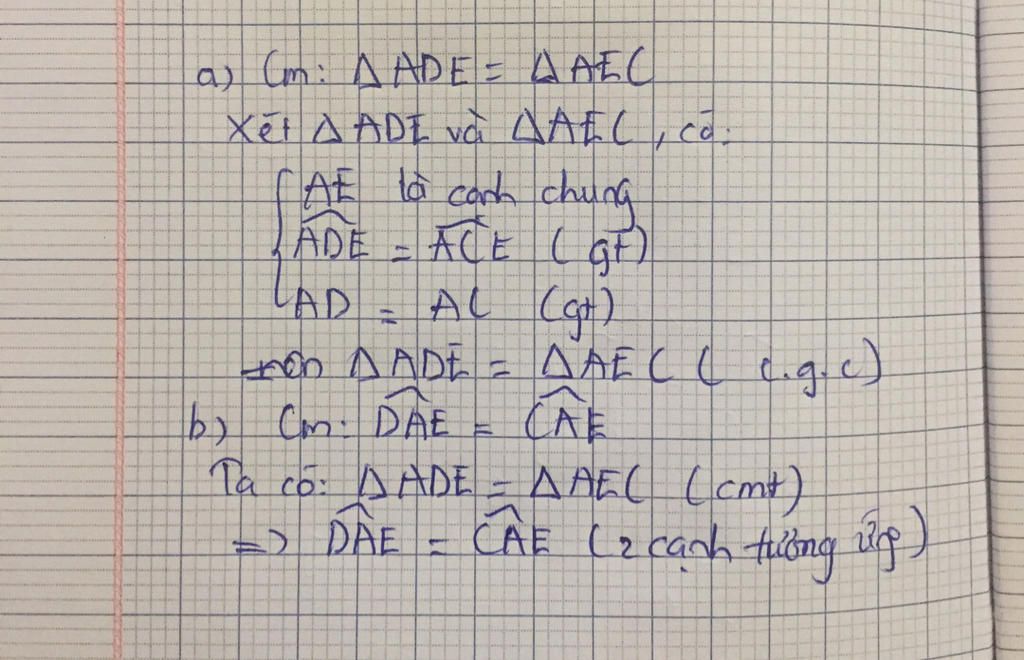 a) Cm: Δ ADE = Δ AEC
Xét Δ ADE và Δ AEC, có:
AE là cạnh chung
ADE = ACE (gt)
AD = AC (gt)
nên Δ ADE = Δ AEC ( c.g.c)
b) Cm: DAE = CAE
Ta có: Δ ADE = Δ AEC (cmt)
=> DAE = CAE (2 cạnh tương ứng)